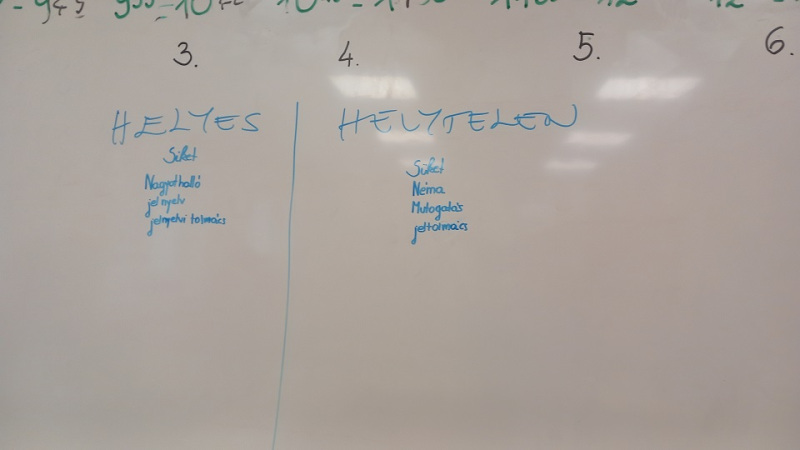 3. 4. 5. 6.
HELYES
Süket
Nagyothalló
jelnyelv
jelnyelvi tolmács
HELYTELEN
Süket
Néma
Mutogatás
jeltolmács